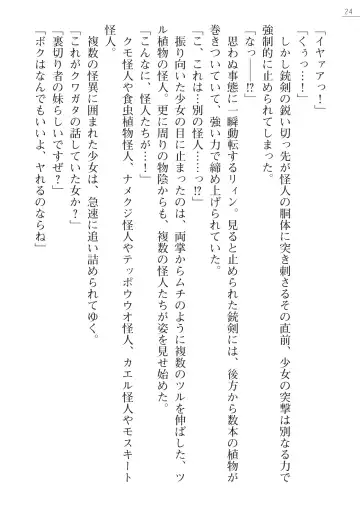 24
「イヤァアっ！」
「くぅっ…！」
しかし銃剣の鋭い切っ先が怪人の胴体に突き刺さるその直前、少女の突撃は別なる力で
強制的に止められてしまった。
「なっ――!?」
思わぬ事態に一瞬動転するリィン。見ると止められた銃剣には、後方から数本の植物が
巻きついていて、強い力で締め上げられていた。
「こ、これは…別の怪人……っ!?」
振り向いた少女の目に止まったのは、両掌からムチのように複数のツルを伸ばした、ツ
ル植物の怪人。更に周りの物陰からも、複数の怪人たちが姿を見せ始めた。
「こんなに、怪人たちが…！」
クモ怪人や食虫植物怪人、ナメクジ怪人やテッポウウオ怪人、カエル怪人やモスキート
怪人。
複数の怪異に囲まれた少女は、急速に追い詰められてゆく。
「これがクワガタの話していた女か？」
「裏切り者の妹らしいですぜ？」
「ボクはなんでもいいよ、ヤれるのならね」